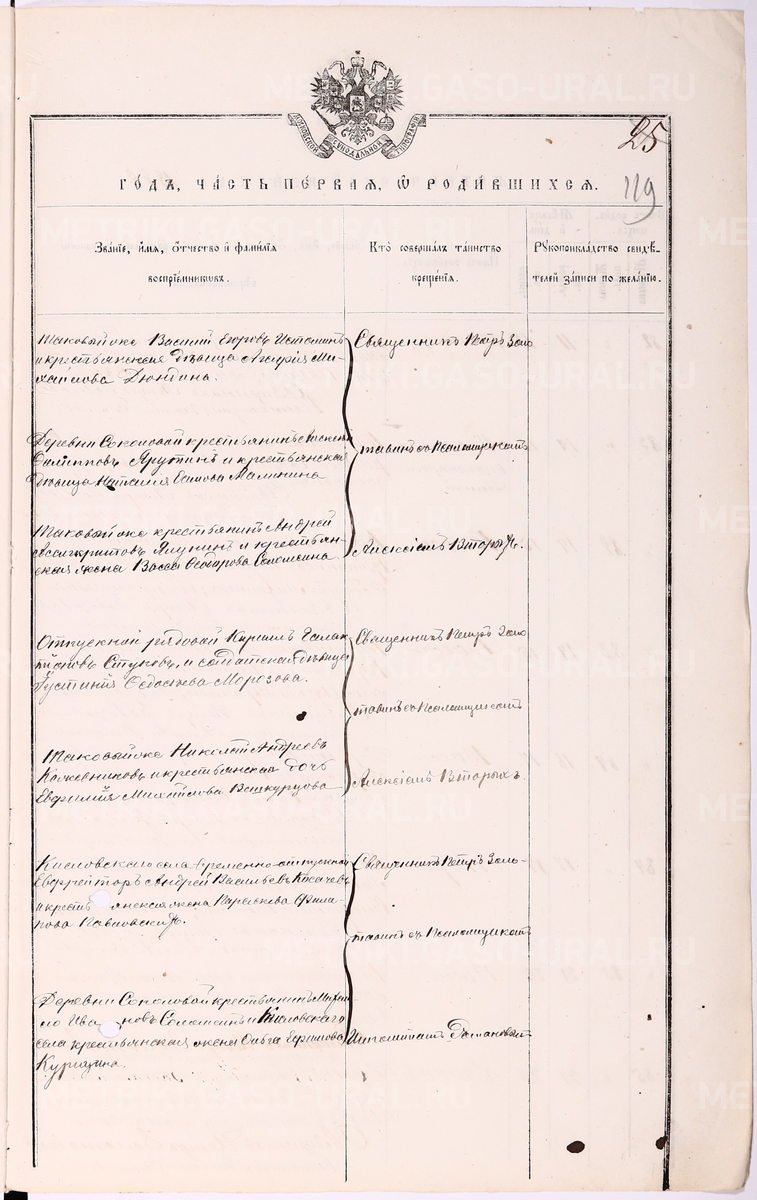 МОСКОВСКОЙ СѴНОДАЛЬНОЙ ТИПОГРАФІИ
25
119
ГОДЪ, ЧАСТЬ ПЕРВАЯ, Ѿ РОДИВШИХСЯ.
Званіе, имя, отчество и фамилія
воспріемниковъ.
Кто совершалъ таинство
крещенія.
Рукоприкладство свидѣ-
телей записи по желанію.
Таковый же Василій Егоровъ Истоминъ
и крестьянская дѣвица Агафія Ми-
хайлова Дюндина.
Священникъ Петръ Золо
Деревни Соколовой крестьянинъ
Филипповъ и крестьянская
дѣвица Наталія Малинина
тавинъ съ Псаломщикомъ
Таковый же крестьянинъ Андрей
Ассигкритовъ Ялунинъ и крестьян-
ская жена Васса Ѳеодорова Соломеина.
Алексіемъ Вторыхъ.
Отпускной рядовой Кирилъ Галак
тіоновъ Стуковъ, и солдатская дѣвица
Іустинія Ѳедосѣева Морозова.
Священникъ Петръ Золо
тавинъ съ Псаломщикомъ
Таковый же Николай Андреевъ
Кожевниковъ и крестьянская дочь
Евфимія Михайлова Вашкурцова
Алексіемъ Вторыхъ
Кисловскаго села временно-отпускной
Ефрейторъ Андрей Васильевъ Косачевъ
и крест янская жена Параскева Фили-
пова Павловскихъ.
Священникъ Петръ Золо-
тавинъ съ Псаломщикомъ
Деревни Соколовой крестьянинъ Михаи
ло Ива новъ Соломеинъ и Кисловскаго
села крестьянская жена Ольга Ефимова
Кургузина.
Ипполитомъ Домановымъ
METRIKI.GASO-URAL.RU